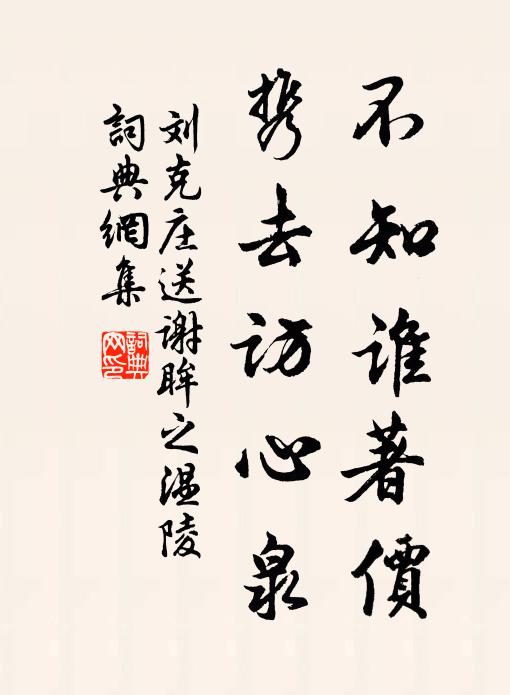 不知谁著價
携去访心泉
刘克庄送谢眸之温陵
词典網集
詞典网印